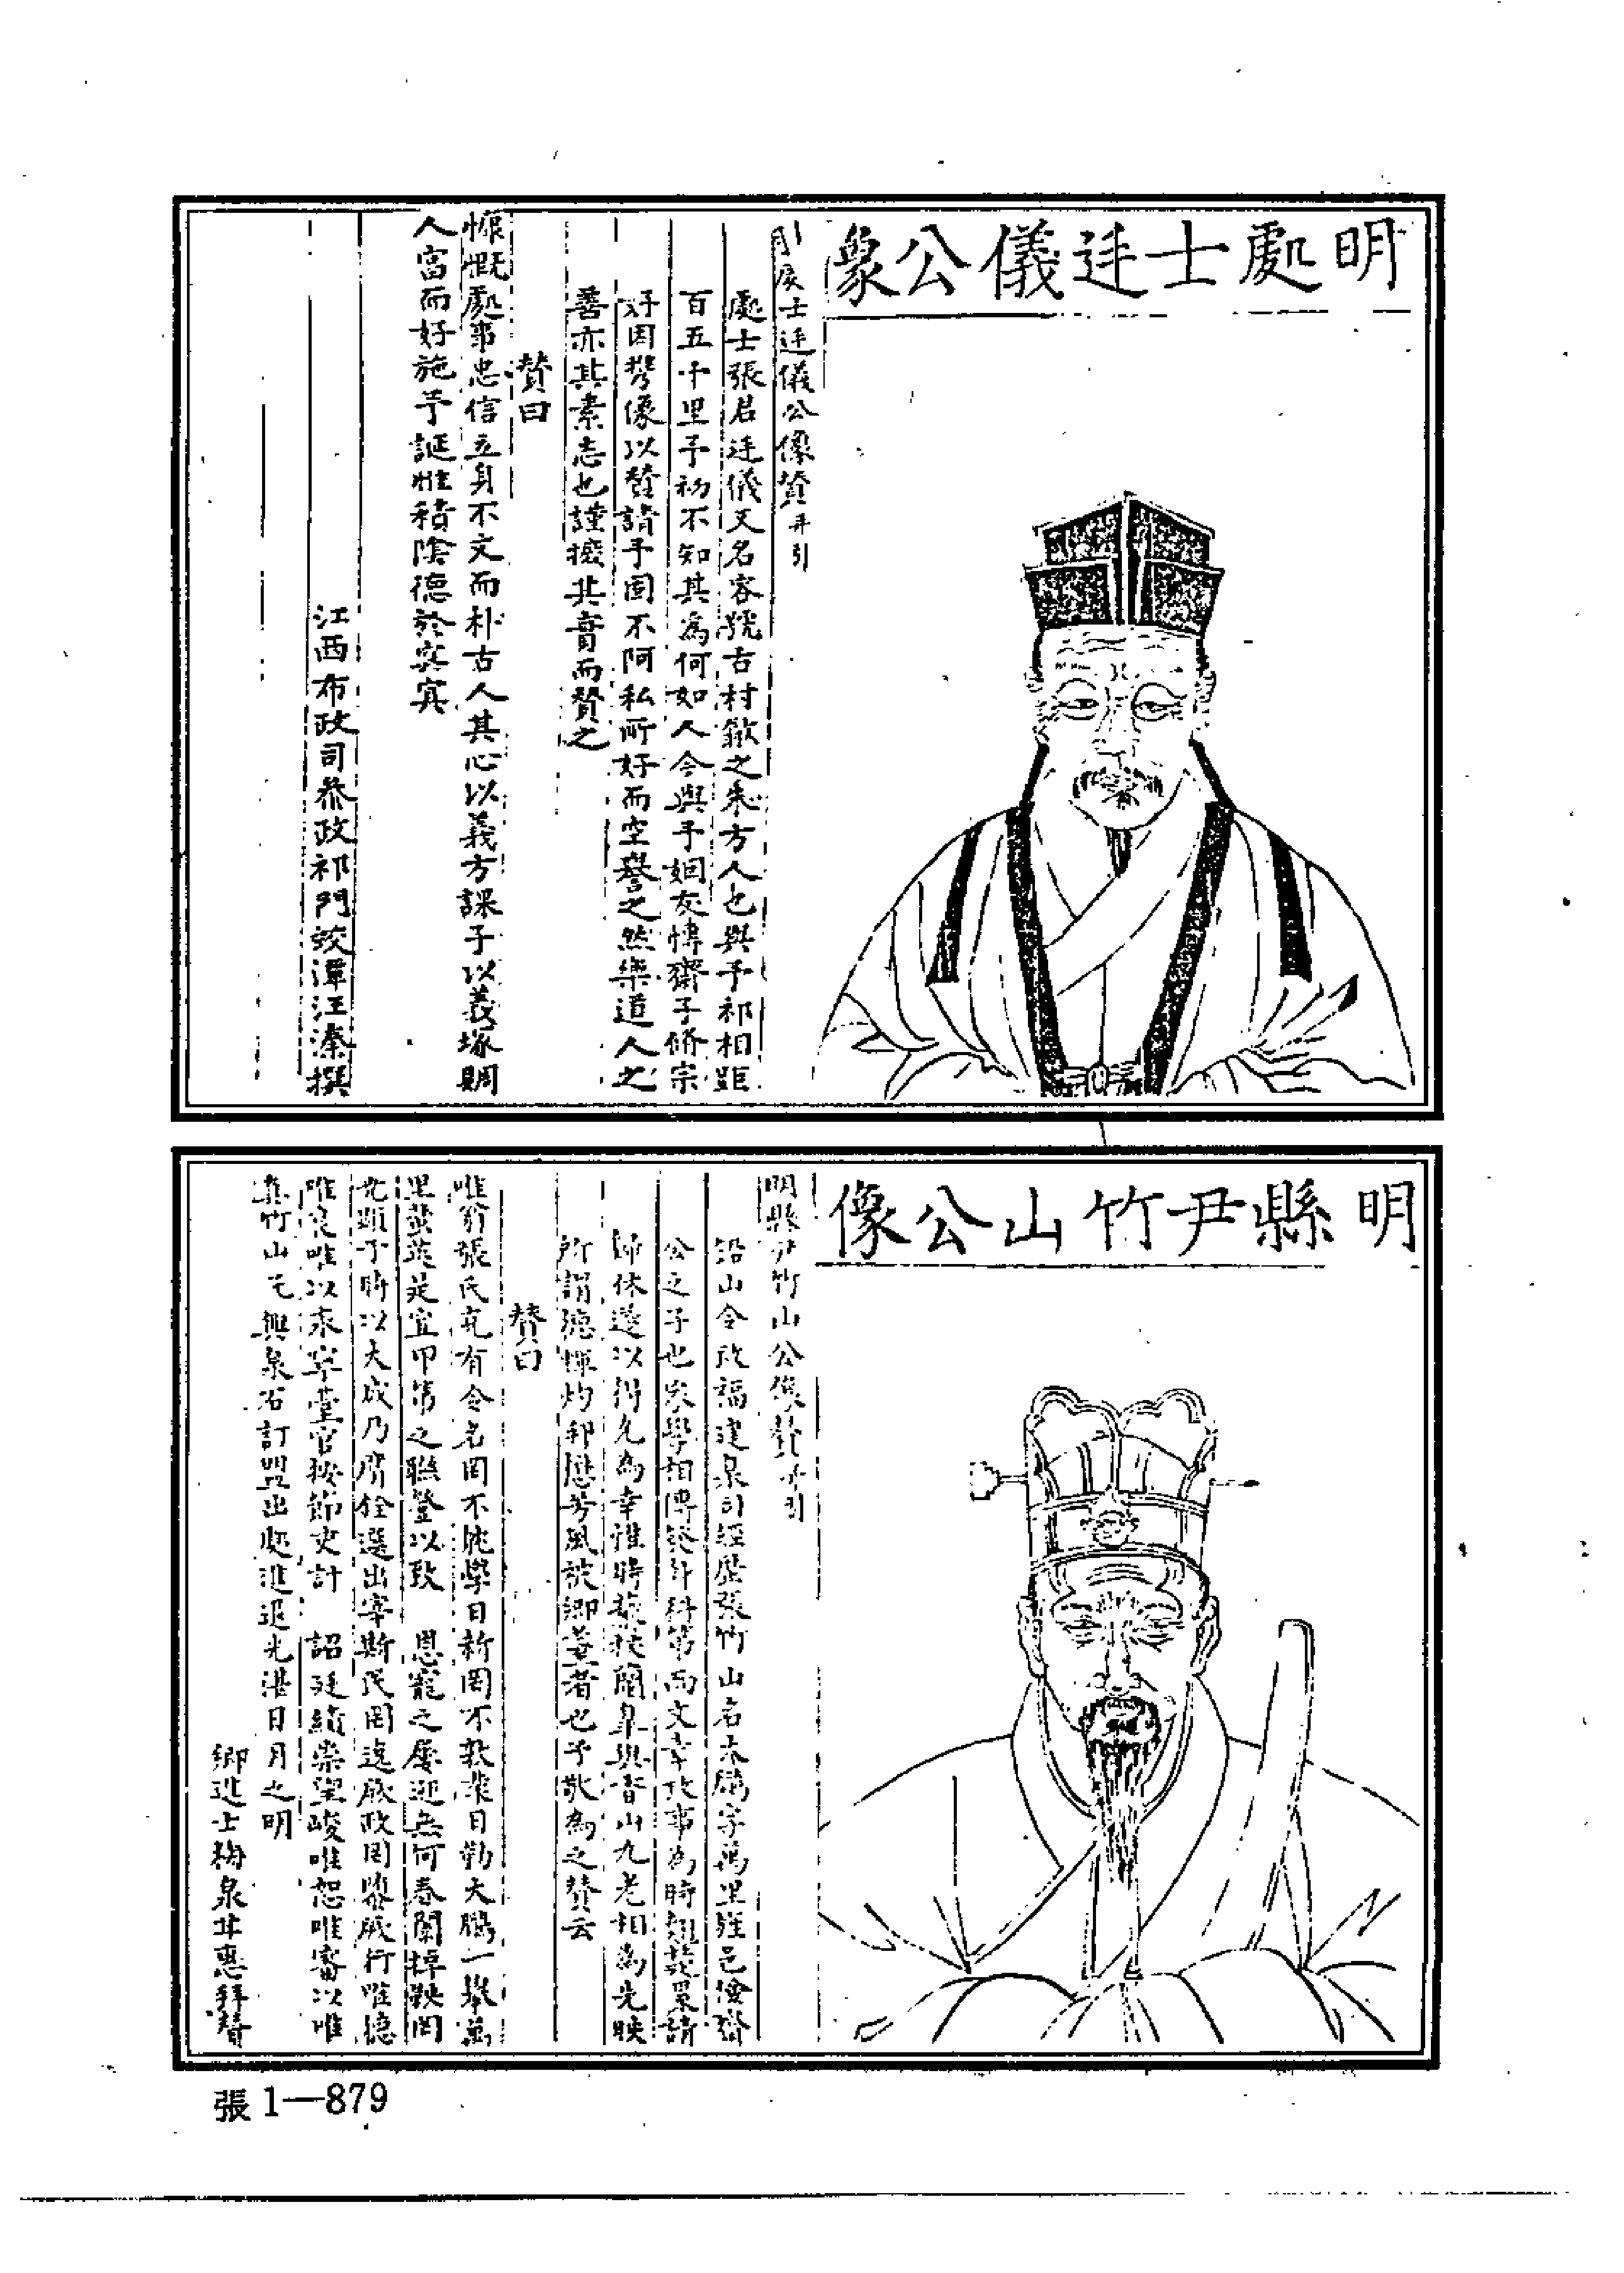 明處士廷儀公象
明處士廷儀公像贊并引
處士張君廷儀又名容號古村歙之朱方人也與予祁相距
百五十里予初不知其為何如人今與予姻友慱齋子脩宗
好因携像以贊請予固不阿私所好而空譽之然樂道人之
善亦其素志也謹摭其實而贊之
贊曰
慷慨處事忠信立身不文而朴古人其心以義方課子以義塚賙
人富而好施予誕惟積陰德於冥冥
江西布政司叅政祁門蛟潭汪溱撰
明縣尹竹山公像
明縣尹竹山公像贊并引
沿山令改福建泉司經歷張竹山名大鵬字萬里維邑儉齋
公之子也家學相傳發身科第而文章政事為時翹楚累請
歸休遂以得允為幸惟時
與香山九老相為先映
所謂德輝灼邦懋芳風被鄉
者也予敬為之贊云
贊曰
唯翁張氏克有令名罔不能學日新罔不敦業日勤大鵬一舉萬
里
是宜甲第之聯登以致 恩寵之屢迎無何春闈掉鞅罔
克顯于時以大成乃膺銓選出宰斯民罔遑厥政罔
厥行唯德
唯良唯以永寧臺官按節史計 詔廷績崇望峻唯恕唯審以唯
真竹山兮興泉石訂盟出處進退光湛日月之明
鄉進士梅泉
惠拜贊
張1—879